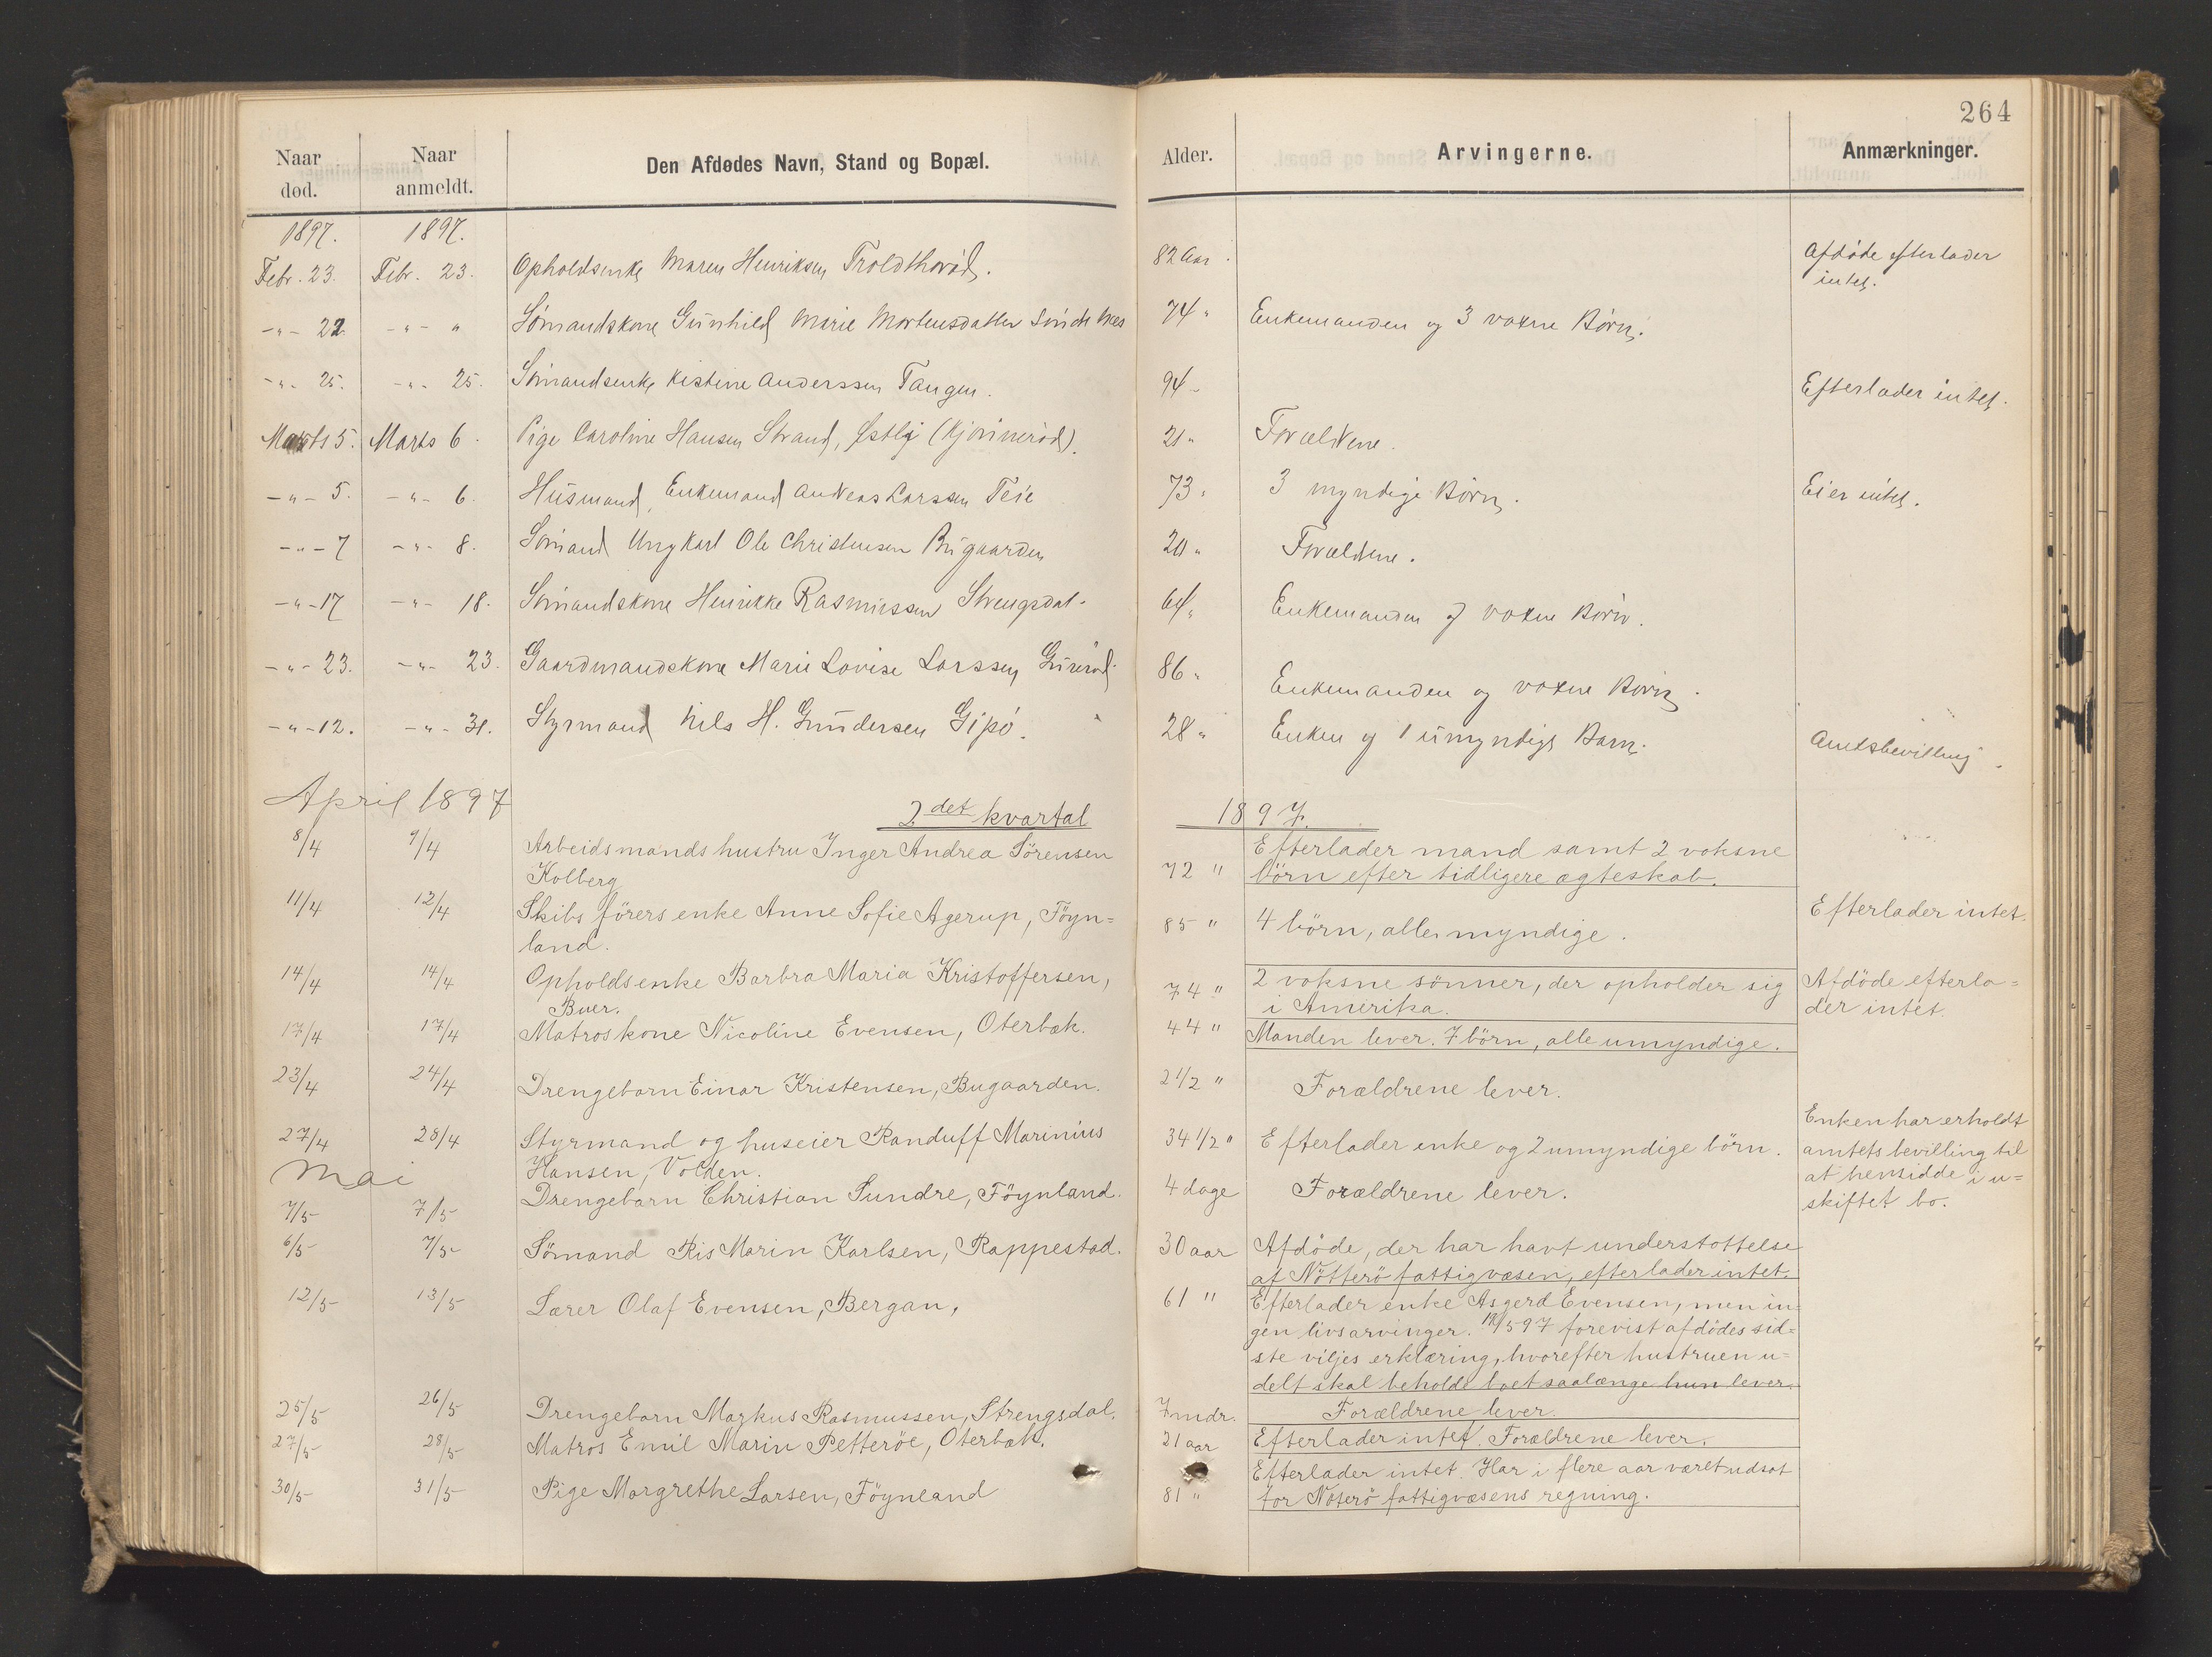 264
Naar død. Naar anmeldt. Den Afdødes Navn, Stand og Bopæl. Alder. Arvingerne. Anmærkninger.
1897. 1897.
Febr. 23. Febr. 23. Opholdsenke Maren Henriksen Troldthoved. 82 Aar. Afdøde efterlader
intet.
-"- 22. -"- " Sömandskone Gunhild Marie Mortensdatter 74 " Enkemanden og 3 voxne Børn.
-"- 25. -"- 25. Sömandsenke Kistine Anderssen Tangen. 94 - Efterlader intet.
Marts 5. Marts 6. Pige Caroline Hansen Strand, Østby 21 " Forældrene.
-"- 5. -"- 6. Husmand, Enkemand Andreas Larssen Teie 73 " 3 myndige Børn. Eier intet.
-"- 7 -"- 8. Sömand Ungkarl Ole Christensen Bugaarden 20 " Forældrene.
-"- 17 -"- 18. Sömandskone Henrikke Rasmussen Strengsdal. 64 " Enkemanden 7 voxne Børn.
-"- 23. -"- 23. Gaardmandskone Marie Lovise Larssen 86 " Enkemanden og voxne Børn.
-"- 12. -"- 31. Styrmand Nils H. Gundersen Gipö. 28 " Enken og 1 umyndigt Barn. Amtsbevilling.
April 1897 2det kvartal 1897.
8/4 9/4 Arbeidsmands hustru Inger Andrea Sörensen Efterlader mand samt 2 voksne
Kolberg 72 " börn efter tidligere ægteskab.
11/4 12/4 Skibsförers enke Anne Sofie Agerup, Föyn= 85 " 4 börn, alle myndige. Efterlader intet.
land.
14/4 14/4 Opholdsenke Barbra Maria Kristoffersen, 74 " 2 voksne sönner, der opholder sig Afdöde efterla=
Buer. i Amerika. der intet.
17/4 17/4 Matroskone Nicoline Evensen, Oterbæk. 44 " Manden lever. 7 börn, alle umyndige.
23/4 24/4 Drengebarn Einar Kristensen, Bugaarden. 2 1/2 " Forældrene lever.
27/4 28/4 Styrmand og huseier Randuff Marinius 34 1/2 " Efterlader enke og 2 umyndige börn. Enken har erholdt
amtets bevilling til
Hansen, Volden. at hensidde i u=
skiftet bo.
Mai
7/5 7/5 Drengebarn Christian Sundre, Föynland. 4 dage Forældrene lever.
6/5 7/5 Sömand Ris Marin Karlsen, Rappestad. 30 aar Afdöde, der har havt understottelse
af Nötterö fattigvæsen, efterlader intet.
12/5 13/5 Lærer Olaf Evensen, Bergan, 61 " Efterlader enke Asgerd Evensen, men in=
gen livsarvinger. /5 97 forevist afdödes sid=
ste viljes erklæring, hvorefter hustruen u=
delt skal beholde boet saalænge hun lever.
25/5 26/5 Drengebarn Markus Rasmussen, Strengsdal. 7 mdr. Forældrene lever.
27/5 28/5 Matros Emil Marin Petteröe, Oterbæk. 21 aar Efterlader intet. Forældrene lever.
Efterlader intet. Har i flere aar været udsat
30/5 31/5 Pige Margrethe Larsen, Föynland 81 " for Nöterö fattigvæsens regning.